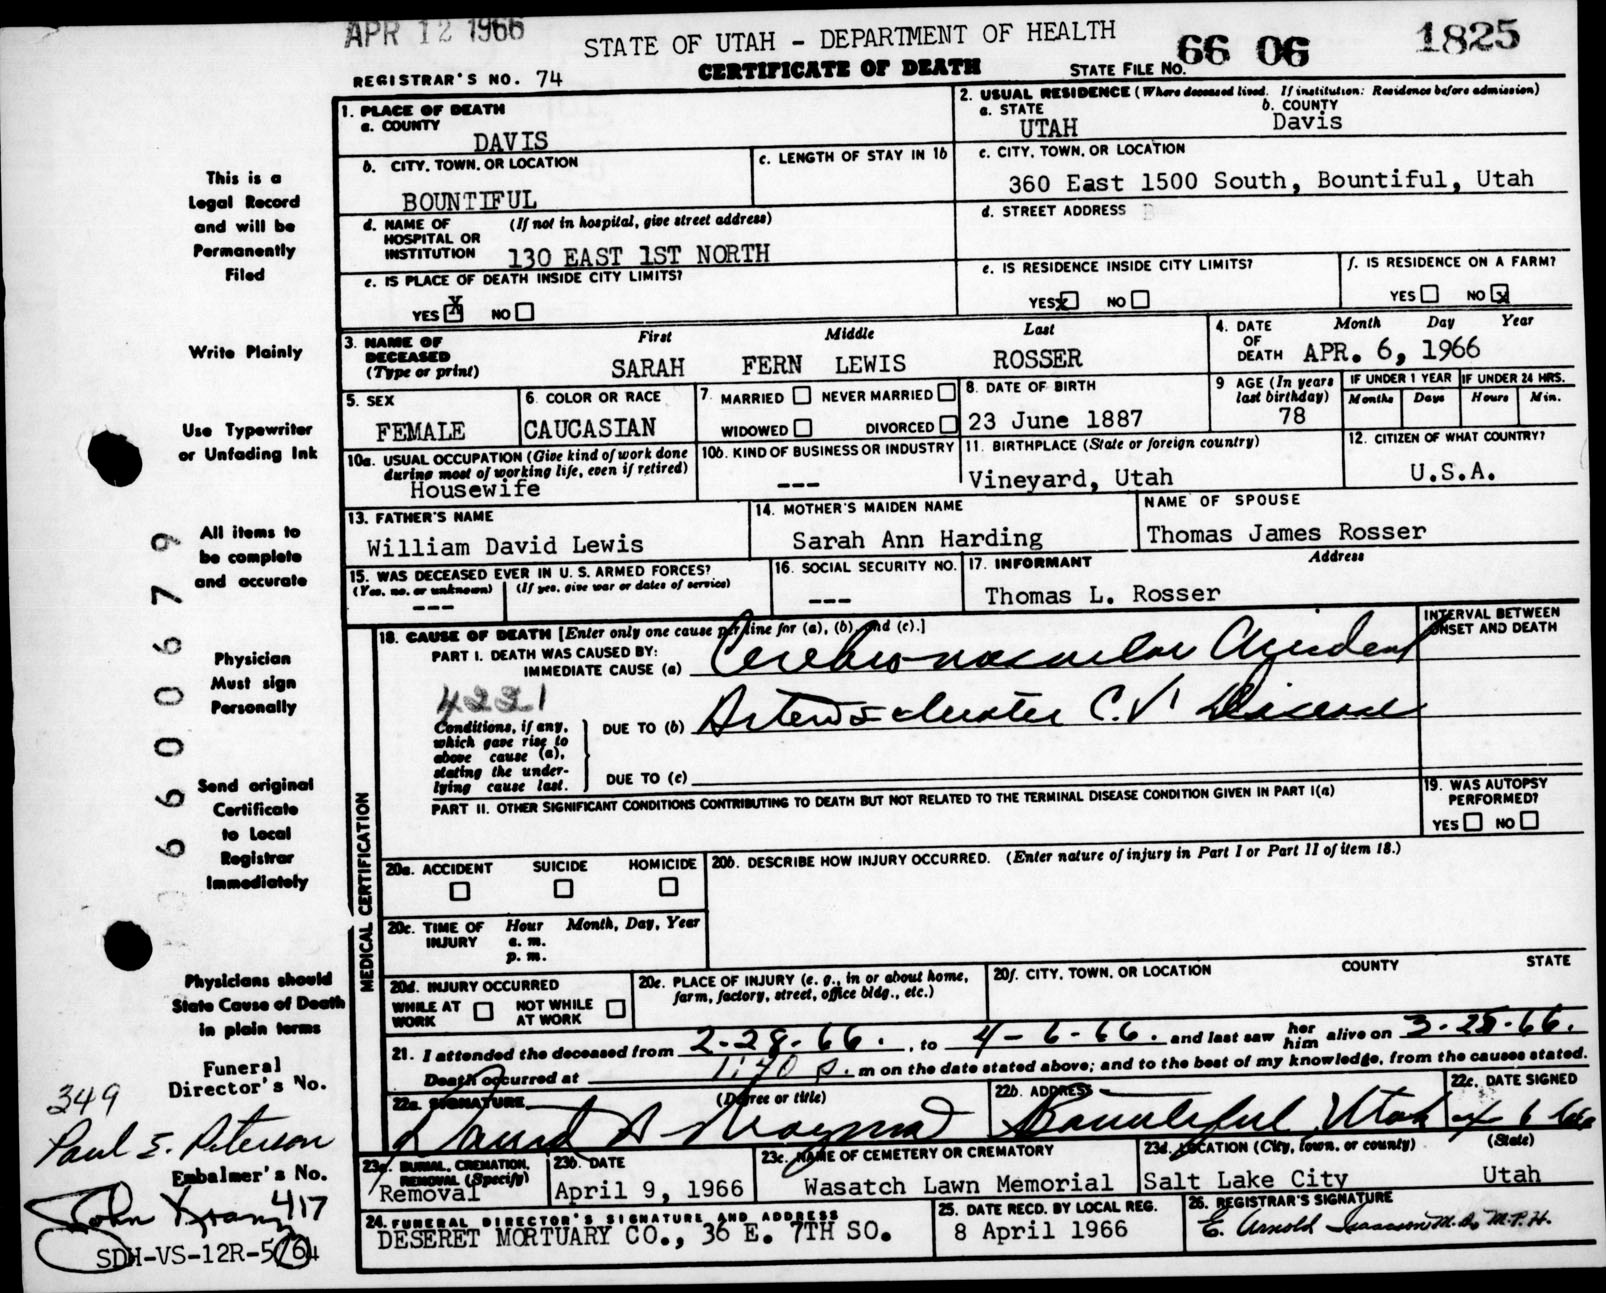 APR 12 1966
STATE OF UTAH - DEPARTMENT OF HEALTH
66 06 1825
REGISTRAR'S NO. 74
CERTIFICATE OF DEATH
STATE FILE NO.
1. PLACE OF DEATH
a. COUNTY
DAVIS
2. USUAL RESIDENCE (Where deceased lived. If institution: Residence before admission)
a. STATE
UTAH
b. COUNTY
Davis
b. CITY, TOWN, OR LOCATION
BOUNTIFUL
c. LENGTH OF STAY IN 1b
c. CITY, TOWN, OR LOCATION
360 East 1500 South, Bountiful, Utah
d. NAME OF HOSPITAL OR INSTITUTION
(If not in hospital, give street address)
130 EAST 1ST NORTH
d. STREET ADDRESS
e. IS PLACE OF DEATH INSIDE CITY LIMITS?
YES X NO
e. IS RESIDENCE INSIDE CITY LIMITS?
YES X NO
f. IS RESIDENCE ON A FARM?
YES NO X
3. NAME OF DECEASED (Type or print)
First Middle Last
SARAH FERN LEWIS ROSSER
4. DATE OF DEATH
Month Day Year
APR. 6, 1966
5. SEX
FEMALE
6. COLOR OR RACE
CAUCASIAN
7. MARRIED NEVER MARRIED
WIDOWED DIVORCED
8. DATE OF BIRTH
23 June 1887
9 AGE (In years last birthday)
78
IF UNDER 1 YEAR
Months Days
IF UNDER 24 HRS.
Hours Min.
10a. USUAL OCCUPATION (Give kind of work done during most of working life, even if retired)
Housewife
10b. KIND OF BUSINESS OR INDUSTRY
---
11. BIRTHPLACE (State or foreign country)
Vineyard, Utah
12. CITIZEN OF WHAT COUNTRY?
U.S.A.
13. FATHER'S NAME
William David Lewis
14. MOTHER'S MAIDEN NAME
Sarah Ann Harding
NAME OF SPOUSE
Thomas James Rosser
15. WAS DECEASED EVER IN U. S. ARMED FORCES?
(Yes, no, or unknown) (If yes, give war or dates of service)
---
16. SOCIAL SECURITY NO.
---
17. INFORMANT Address
Thomas L. Rosser
MEDICAL CERTIFICATION
18. CAUSE OF DEATH [Enter only one cause per line for (a), (b), and (c).]
PART I. DEATH WAS CAUSED BY:
IMMEDIATE CAUSE (a)
Cerebro-vascular
INTERVAL BETWEEN ONSET AND DEATH
4221
Conditions, if any, which gave rise to above cause (a), stating the underlying cause last.
DUE TO (b)
C.V. Disease
DUE TO (c)
PART II. OTHER SIGNIFICANT CONDITIONS CONTRIBUTING TO DEATH BUT NOT RELATED TO THE TERMINAL DISEASE CONDITION GIVEN IN PART I(a)
19. WAS AUTOPSY PERFORMED?
YES NO
20a. ACCIDENT SUICIDE HOMICIDE
20b. DESCRIBE HOW INJURY OCCURRED. (Enter nature of injury in Part I or Part II of item 18.)
20c. TIME OF INJURY
Hour Month, Day, Year
a. m.
p. m.
20d. INJURY OCCURRED
WHILE AT WORK NOT WHILE AT WORK
20e. PLACE OF INJURY (e. g., in or about home, farm, factory, street, office bldg., etc.)
20f. CITY, TOWN, OR LOCATION COUNTY STATE
21. I attended the deceased from 2-28-66. , to 4-6-66. and last saw her him alive on
Death occurred at 1:40 p. m on the date stated above; and to the best of my knowledge, from the causes stated.
22a. SIGNATURE (Degree or title)
David
22b. ADDRESS
Bountiful, Utah
22c. DATE SIGNED
23a. BURIAL, CREMATION, REMOVAL (Specify)
Removal
23b. DATE
April 9, 1966
23c. NAME OF CEMETERY OR CREMATORY
Wasatch Lawn Memorial
23d. LOCATION (City, town, or county) (State)
Salt Lake City Utah
24. FUNERAL DIRECTOR'S SIGNATURE AND ADDRESS
DESERET MORTUARY CO., 36 E. 7TH SO.
25. DATE RECD. BY LOCAL REG.
8 April 1966
26. REGISTRAR'S SIGNATURE
E. Arnold Isaacson M.D. M.P.H.
This is a
Legal Record
and will be
Permanently
Filed
Write Plainly
Use Typewriter
or Unfading Ink
All items to
be complete
and accurate
Physician
Must sign
Personally
Send original
Certificate
to Local
Registrar
Immediately
Physicians should
State Cause of Death
in plain terms
66900679
Funeral
Director's No.
349
Paul E. Peterson
Embalmer's No.
417
John
SDH-VS-12R-5/64